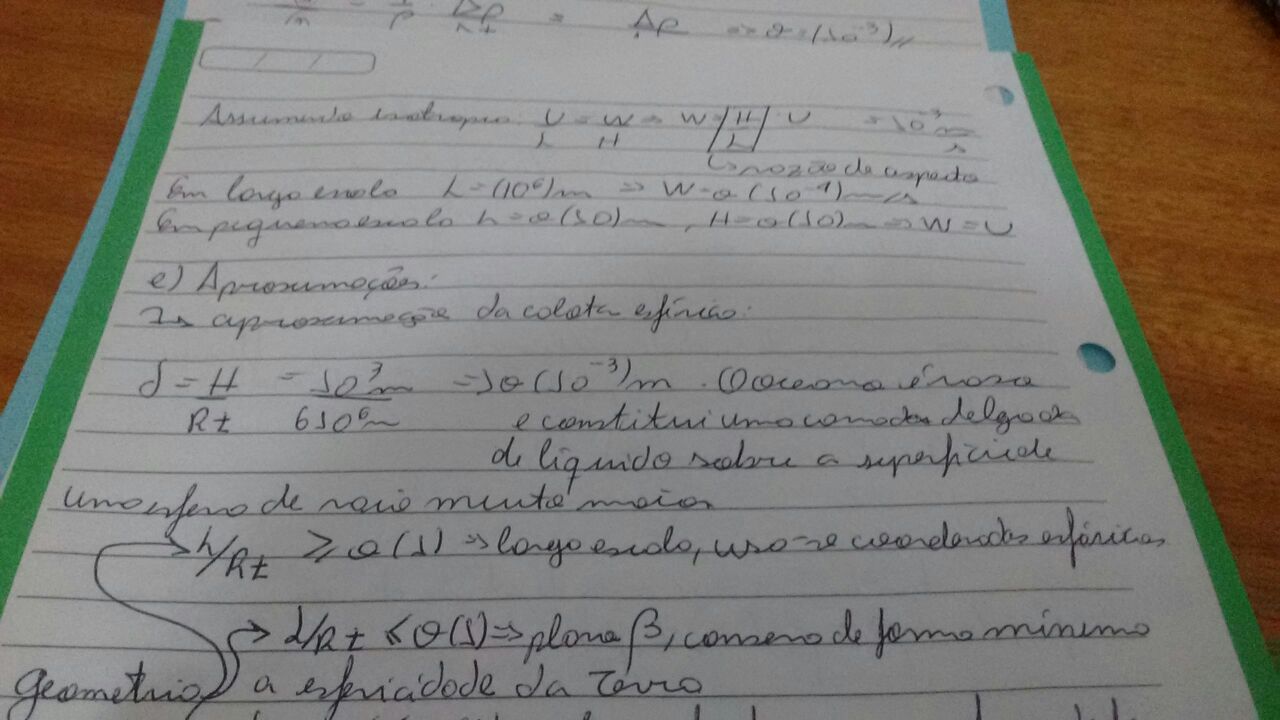 Δρ = Δρ => O(10⁻³)//
Assumindo isotropia: U/L = W/H => W = |H/L| U = 10⁻³ m/s
↳ razão de aspecto
Em larga escala L = (10⁶)m => W = O(10⁻⁴) m/s
Em pequena escala L = O(10)m, H = O(10)m => W = U
e) Aproximações:
↳ aproximação da calota esférica:
δ = H/Rt = 10³m/6 10⁶m = > O(10⁻³)m. O oceano é raso
e constitui uma camada delgada
de líquido sobre a superfície de
uma esfera de raio muito maior
→ L/Rt ≥ O(1) => larga escala, usa-se coordenadas esféricas
→ L/Rt < O(1) => plano β, conserva de forma mínima
geometria a esfericidade da Terra